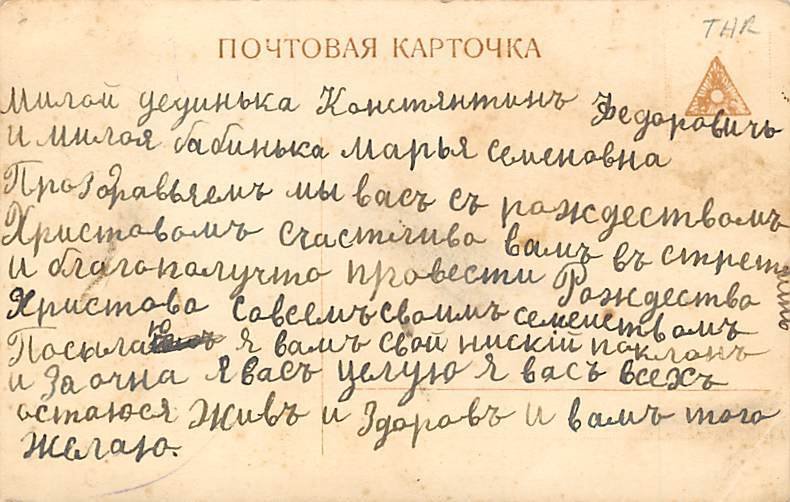 THR
ПОЧТОВАЯ КАРТОЧКА
Милой дединька Констянтинъ Ѳедоровичъ
и милоя бабинька марья семеновна
Проздравьяемъ мы васъ съ рождествомъ
Христовомъ счастливо вамъ въ стретить
и благополучто провести Рождество
Христово совсемъ своимъ семеиствомъ
Посылаю я вамъ свой нискій поклонъ
и За очна я васъ целую я васъ всехъ
остаюся Живъ и Здоровъ и вамъ того
желаю.